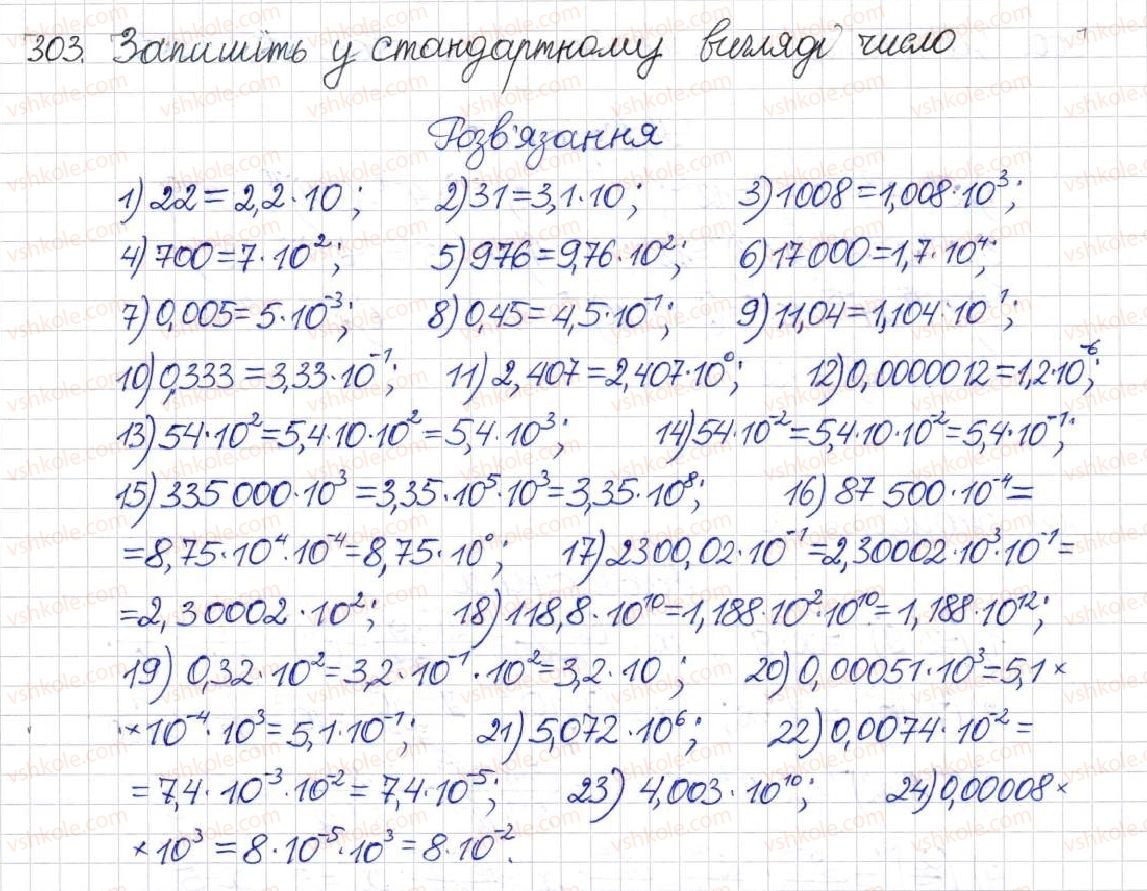 303. Запишіть у стандартному вигляді число
Розв'язання
1) 22 = 2,2·10; 2) 31 = 3,1·10; 3) 1008 = 1,008·10³;
4) 700 = 7·10²; 5) 976 = 9,76·10²; 6) 17000 = 1,7·10⁴;
7) 0,005 = 5·10⁻³; 8) 0,45 = 4,5·10⁻¹; 9) 11,04 = 1,104·10¹;
10) 0,333 = 3,33·10⁻¹; 11) 2,407 = 2,407·10⁰; 12) 0,0000012 = 1,2·10⁻⁶;
13) 54·10² = 5,4·10·10² = 5,4·10³; 14) 54·10⁻² = 5,4·10·10⁻² = 5,4·10⁻¹;
15) 335 000·10³ = 3,35·10⁵·10³ = 3,35·10⁸; 16) 87 500·10⁻⁴ =
= 8,75·10⁴·10⁻⁴ = 8,75·10⁰; 17) 2300,02·10⁻¹ = 2,30002·10³·10⁻¹ =
= 2,30002·10²; 18) 118,8·10¹⁰ = 1,188·10²·10¹⁰ = 1,188·10¹²;
19) 0,32·10² = 3,2·10⁻¹·10² = 3,2·10; 20) 0,00051·10³ = 5,1×
×10⁻⁴·10³ = 5,1·10⁻¹; 21) 5,072·10⁶; 22) 0,0074·10⁻² =
= 7,4·10⁻³·10⁻² = 7,4·10⁻⁵; 23) 4,003·10¹⁰; 24) 0,00008×
×10³ = 8·10⁻⁵·10³ = 8·10⁻².